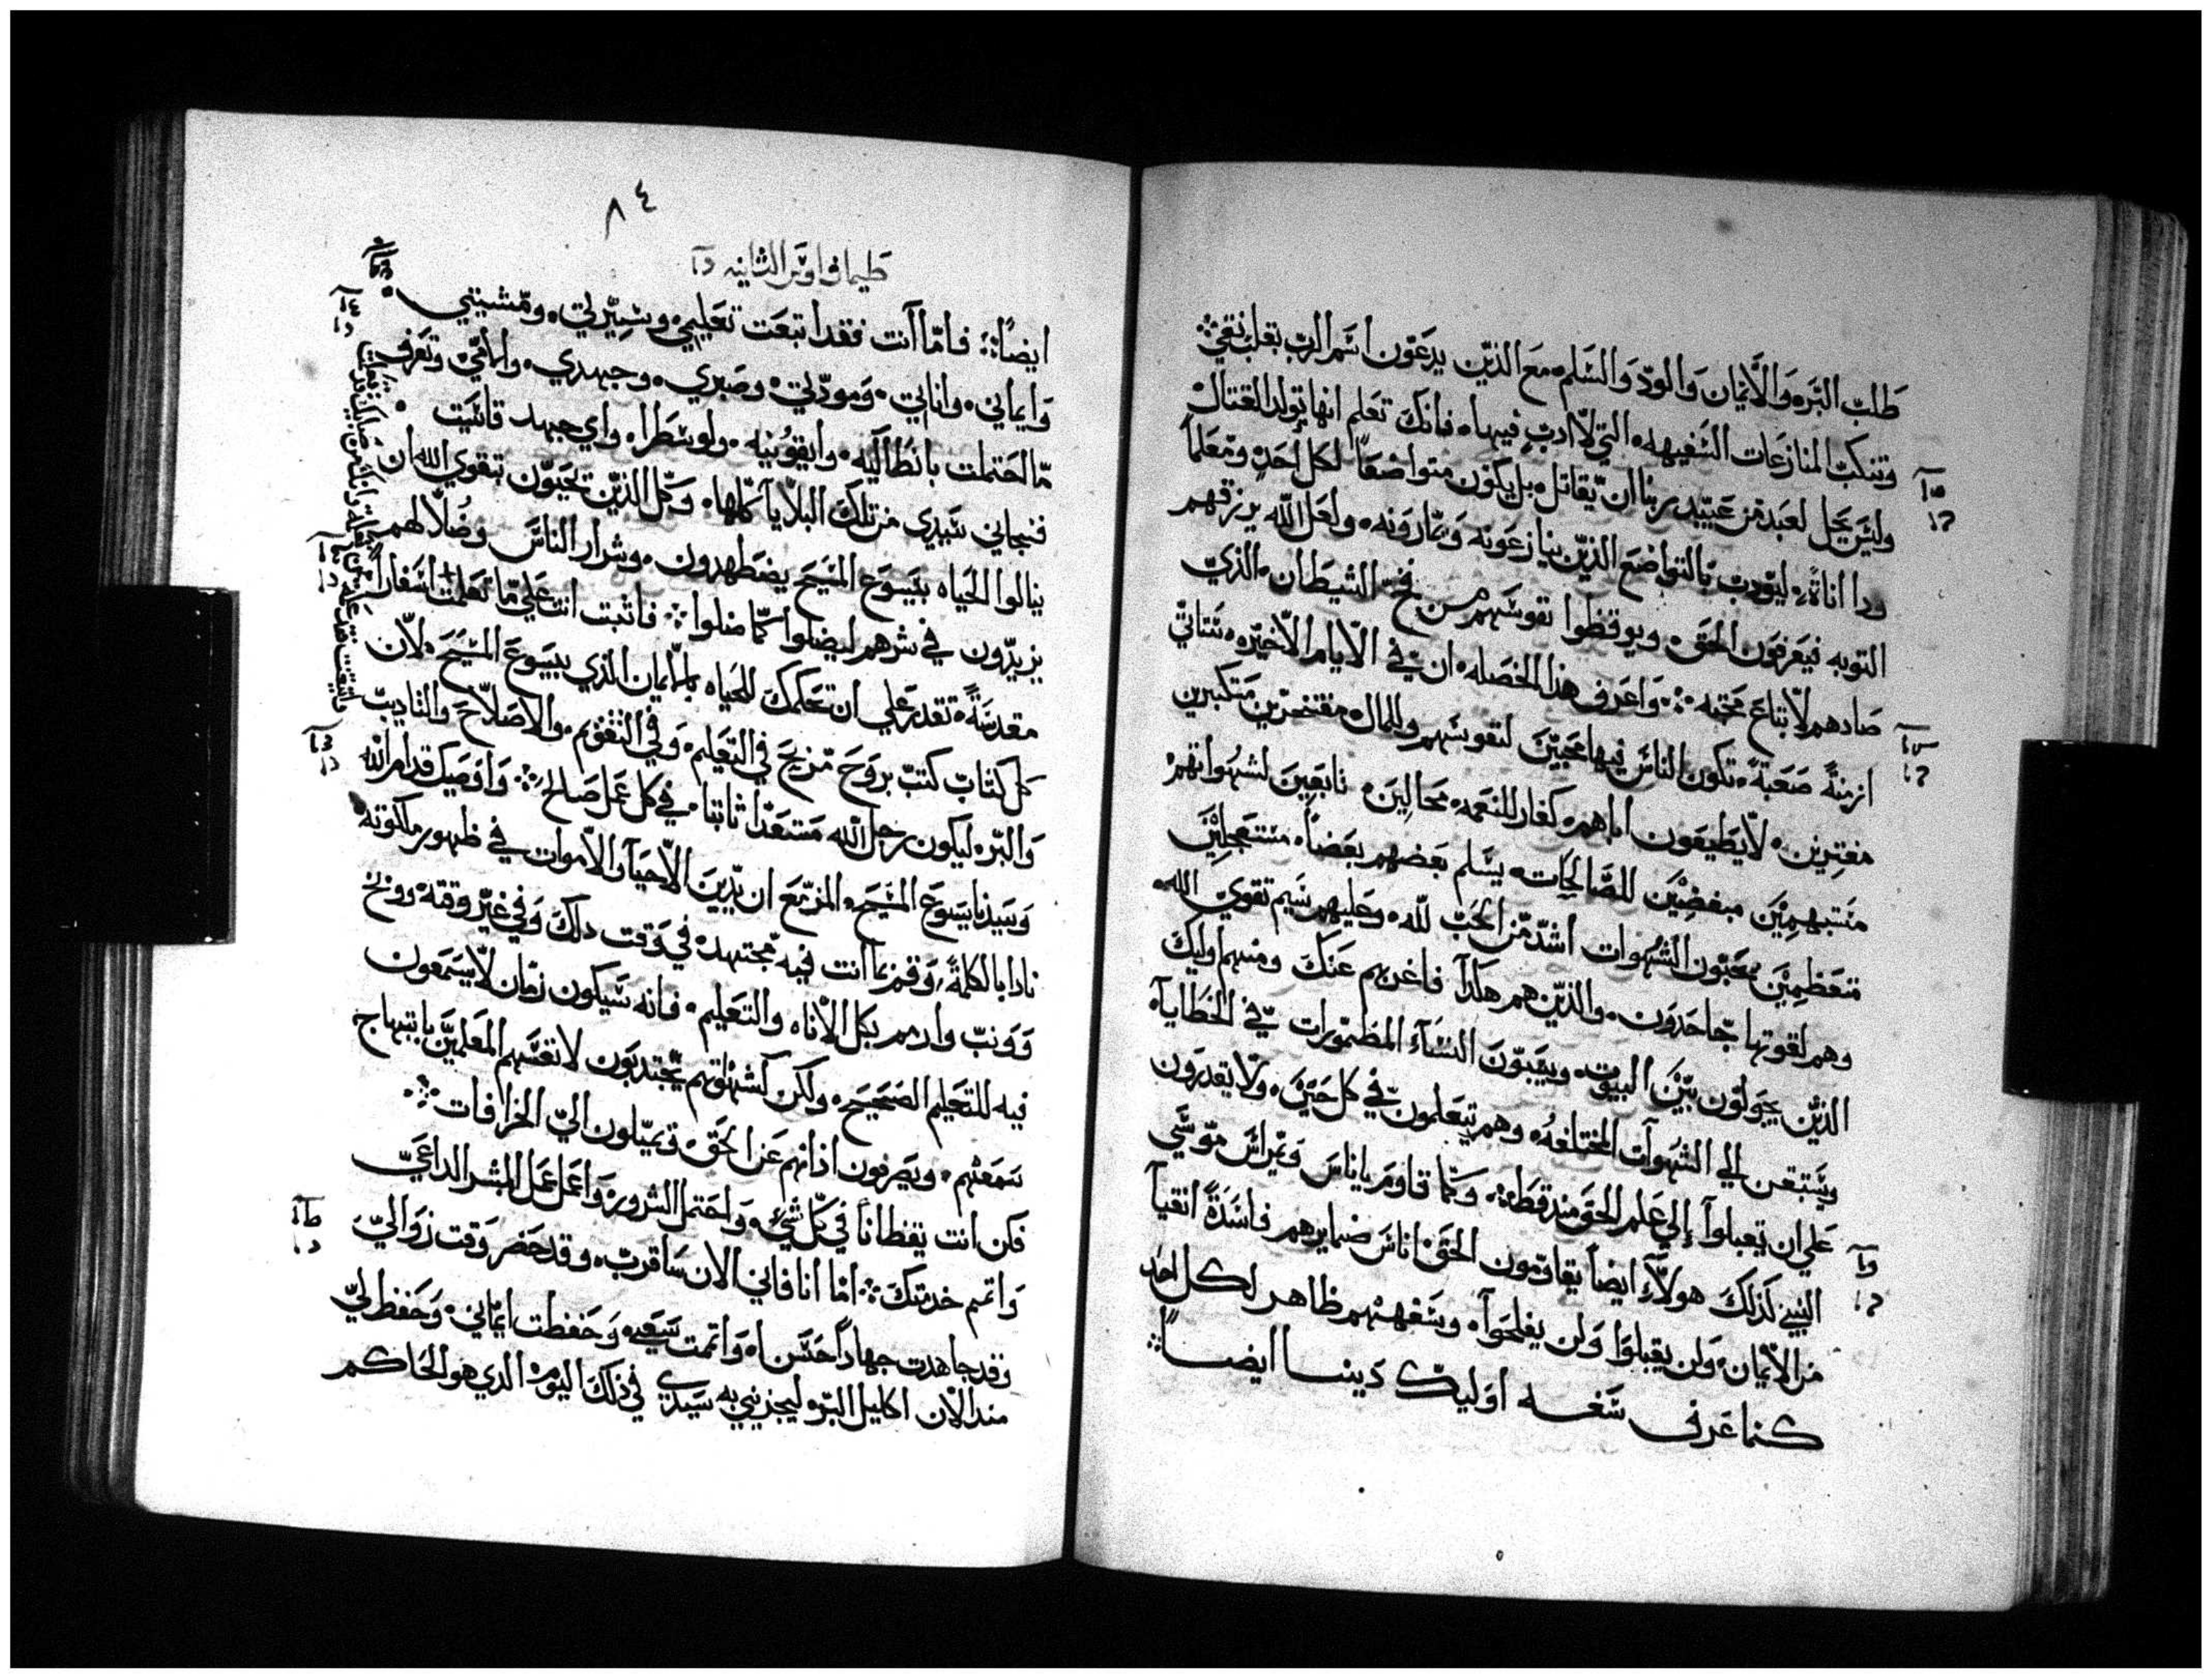 طلب البره والايمان والود والسلم مع الذين يدعون اسم الرب بقلب نقي
وتنكب المنازعات السفيهه التي لا ادب فيها فانك تعلم انها تولد القتال
وليس يحل لعبد من عبيد ربنا ان يقاتل بل يكون متواضعاً لكل احد ومعلماً
ودا اناة ليودب بالتواضع الذين ينازعونه ويمارونه ولعل الله يرزقهم
التوبه فيعرفون الحق ويوقظوا نفوسهم من فخ الشيطان الذي
صادهم لاتباع محبته واعرف هذا الخصله ان في الايام الاخيره ستاتي
ازمنةً صعبةً تكون الناس فيها محبين لنفوسهم وللمال مفتخرين متكبرين
مفترين لا يطيعون اباهم كفار للنعمه محالين تابعين لشهواتهم
متبهمين مبغضين للصالحات يسلم بعضهم بعضاً مستعجلين
متعظمين محبون الشهوات اشد من الحب لله وعليهم سيم تقوي الله
وهم لقوتها جاحدون والذين هم هكدا فاغربهم عنك ومنهم اوليك
الذين يجولون بين البيوت ويسبون النسآء المطمورات في الخطايا
ويستبقن الي الشهوات المختلفه وهم يتعلمون في كل حين ولا يقدرون
علي ان يقبلوا الي علم الحق مند قط وكما قاوم ياناس ويمراس موسي
النبي كذلك هولاء ايضاً يقاومون الحق اناس ضمايرهم فاسدة انقيا
من الايمان ولن يقبلوا ولن يفلحوا وسفههم ظاهر لكل احد
كما عرف سفه اوليك دينا ايضاً
٨٤
طيماتاوس الثانيه
ايضاً فاما انت فقد اتبعت تعليمي وسيرتي ومشيتي
وايماني واناتي ومودتي وصبري وجهدي والامي وتعرف
ما احتملت بانطاكيه وايقونيه ولوسطرا واي جهد قاسيت
فنجاني سيدي من تلك البلايا كلها وكل الذين يحبون بتقوي الله ان
ينالوا الحياه بيسوع المسيح يضطهدون وشرار الناس وضلالهم
يزيدون في شرهم ليضلوا كما ضلوا فاثبت انت علي ما تعلمت اسفاراً
مقدسةً تقدر علي ان تحكمك للحياه بالايمان الذي بيسوع المسيح لان
كل كتاب كتب بروح مزيج في التعليم وفي التقوم والاصلاح والتاديب
والبره ليكون رجل الله مستعداً ثابتا في كل عمل صالح واوصيك قدام الله
وسيدنا يسوع المسيح المزمع ان يدين الاحيا والاموات في ظهور ملكوته
نادا بالكلمة وقم بما انت فيه مجتهد في وقت دلك وفي غير وقته ووبخ
وونب وادمم بكل الاناه والتعليم فانه سيكون زمان لا يسمعون
فيه للتعليم الصحيح ولكن كشهواتهم يجتدبون لانفسهم المعلمين بابتهاج
سمعهم ويصرفون اذانهم عن الحق ويميلون الي الخرافات
فكن انت يقظاناً في كل شي واحتمل الشرور واعمل عمل المبشر الداعي
واتمم خدمتك اما انا فاني الان ساقرب وقد حضر وقت زوالي
وقد جاهدت جهاداً حسناً واتممت سعي وحفظت ايماني وحفظ لي
مند الان اكليل البره ليجزيني به سيدي في ذلك اليوم الذي هو الحاكم